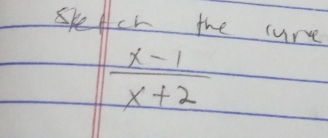 Sketch the curve
x-1
x+2